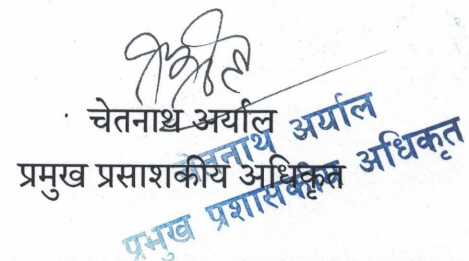 चेतनाथ अर्याल
प्रमुख प्रसाशकीय अधिकृत
चेतनाथ अर्याल
प्रमुख प्रशासकीय अधिकृत